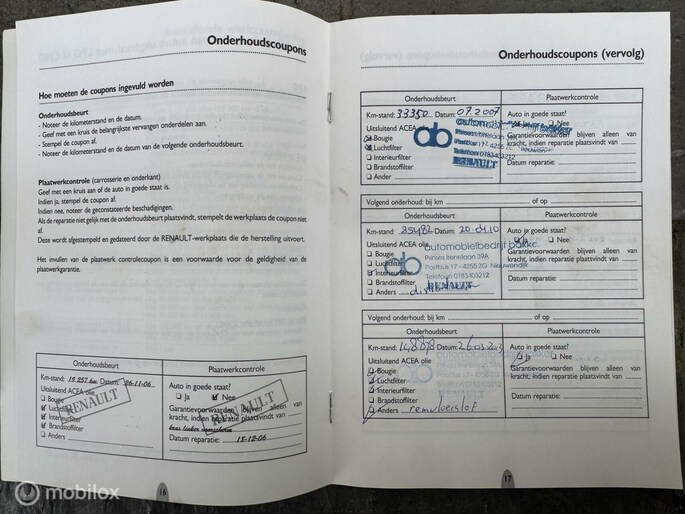 Onderhoudscoupons
Hoe moeten de coupons ingevuld worden
Onderhoudsbeurt
- Noteer de kilometerstand en de datum.
- Geef met een kruis de belangrijkste vervangen onderdelen aan.
- Stempel de coupon af.
- Noteer de kilometerstand en de datum van de volgende onderhoudsbeurt.
Plaatwerkcontrole (carrosserie en onderkant)
Geef met een kruis aan of de auto in goede staat is.
Indien ja, stempel de coupon af.
Indien nee, noteer de geconstateerde beschadigingen.
Als de reparatie niet gelijk met de onderhoudsbeurt plaatsvindt, stempelt de werkplaats de coupon niet
af.
Deze wordt afgestempeld en gedateerd door de RENAULT-werkplaats die de herstelling uitvoert.
Het invullen van de plaatwerk controlecoupon is een voorwaarde voor de geldigheid van de
plaatwerkgarantie.
Onderhoudsbeurt Plaatwerkcontrole
Km-stand: 19 257 km Datum: 06-11-06 Auto in goede staat?
Uitsluitend ACEA olie Ja Nee
Bougie Garantievoorwaarden blijven alleen van
Luchtfilter kracht, indien reparatie plaatsvindt van
Interieurfilter
Brandstoffilter Datum reparatie: 18-12-06
Anders
RENAULT
RENAULT
16
Onderhoudscoupons (vervolg)
Onderhoudsbeurt Plaatwerkcontrole
Km-stand: 33350 Datum: 07.2007 Auto in goede staat?
Uitsluitend ACEA Nee
Bougie Garantievoorwaarden blijven alleen van
Luchtfilter kracht, indien reparatie plaatsvindt van
Interieurfilter
Brandstoffilter Datum reparatie:
Anders
ab
Telefoon 0183403212
RENAULT
Volgend onderhoud: bij km of op
Onderhoudsbeurt Plaatwerkcontrole
Km-stand: 85482 Datum: 20.04.10 Auto in goede staat?
Uitsluitend ACEA olie Ja Nee
Bougie Garantievoorwaarden blijven alleen van
Luchtfilter kracht, indien reparatie plaatsvindt van
Interieurfilter
Brandstoffilter Datum reparatie:
Anders
ab
automobielbedrijf bakker
Prinses Irenelaan 39A
Postbus 17 - 4255 ZG Nieuwendijk
Telefoon 0183403212
RENAULT
Volgend onderhoud: bij km of op
Onderhoudsbeurt Plaatwerkcontrole
Km-stand: 148878 Datum: Auto in goede staat?
Uitsluitend ACEA olie Ja Nee
Bougie Garantievoorwaarden blijven alleen van
Luchtfilter kracht, indien reparatie plaatsvindt van
Interieurfilter
Brandstoffilter Datum reparatie:
Anders remvloeistof
17
mobilox